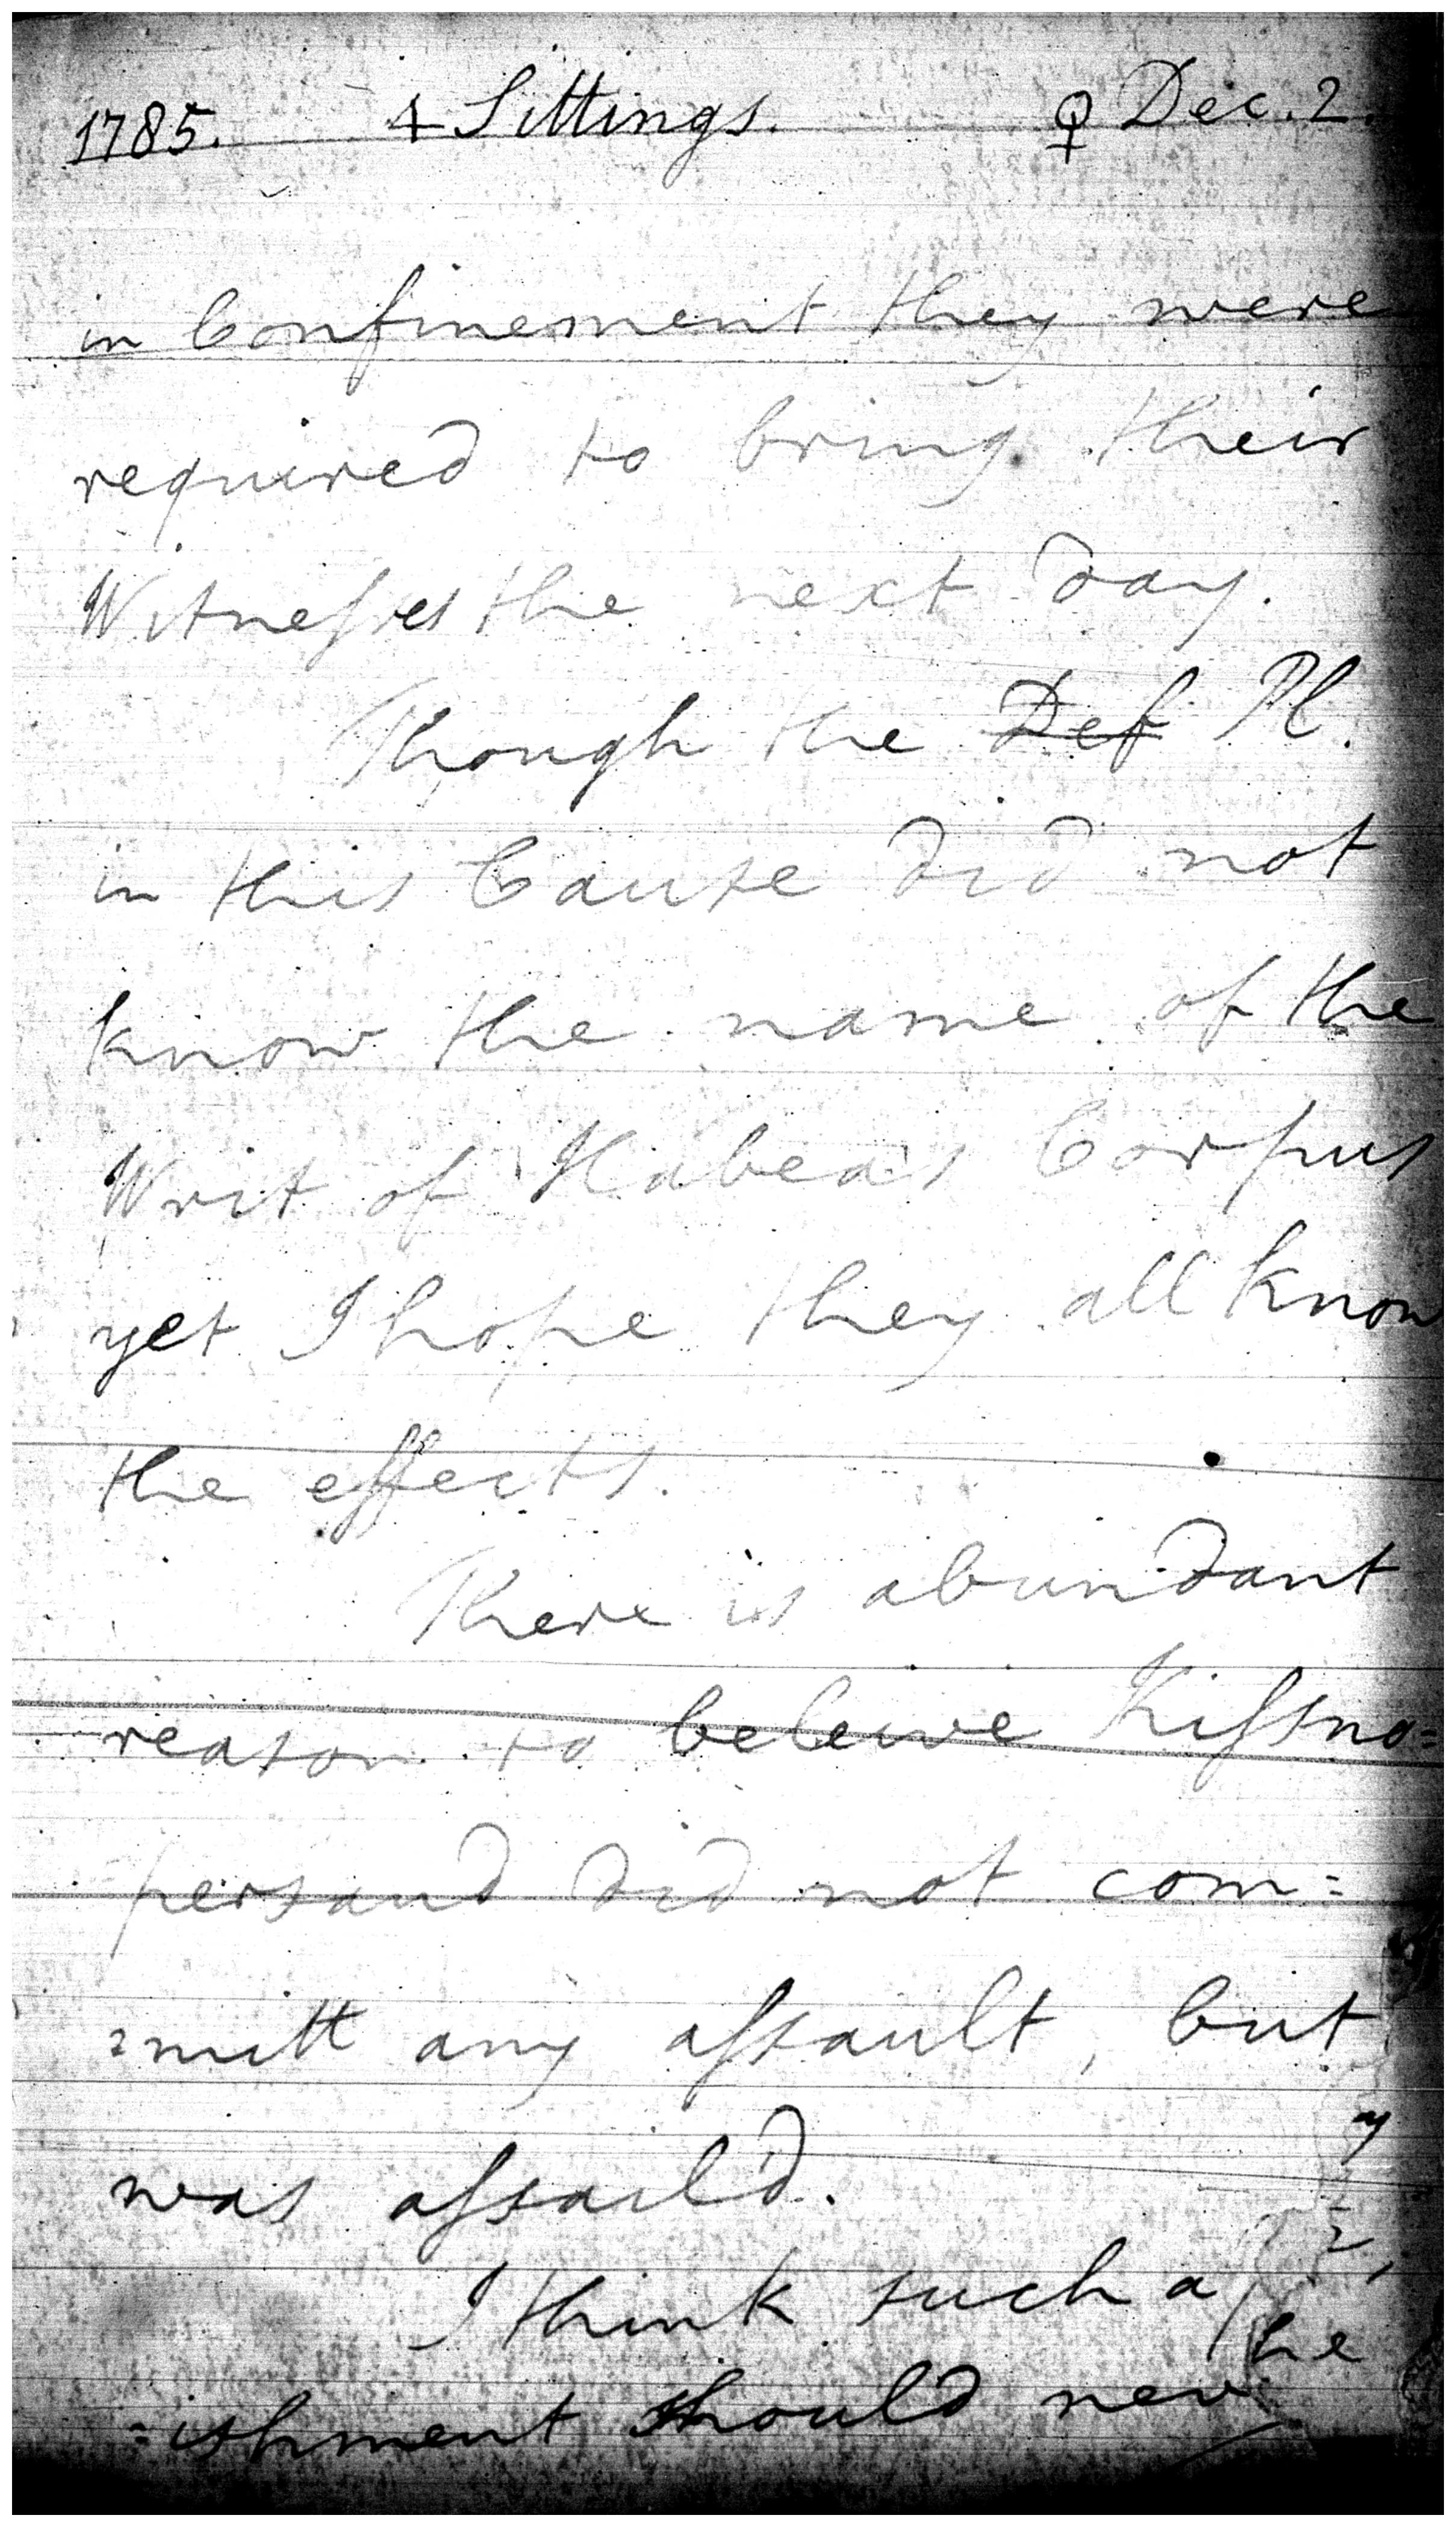 1785. 4 Sittings. ♀ Dec. 2.
in Confinement they were
required to bring their
Witnesses the next day.
Though the Def Pl.
in this Cause did not
know the name of the
Writ of Habeas Corpus
yet I hope they all know
the effects.
There is abundant
reason to beleive Kissno=
persaud did not com=
=mitt any assault, but
was assail'd.
I think such a
=ishment should